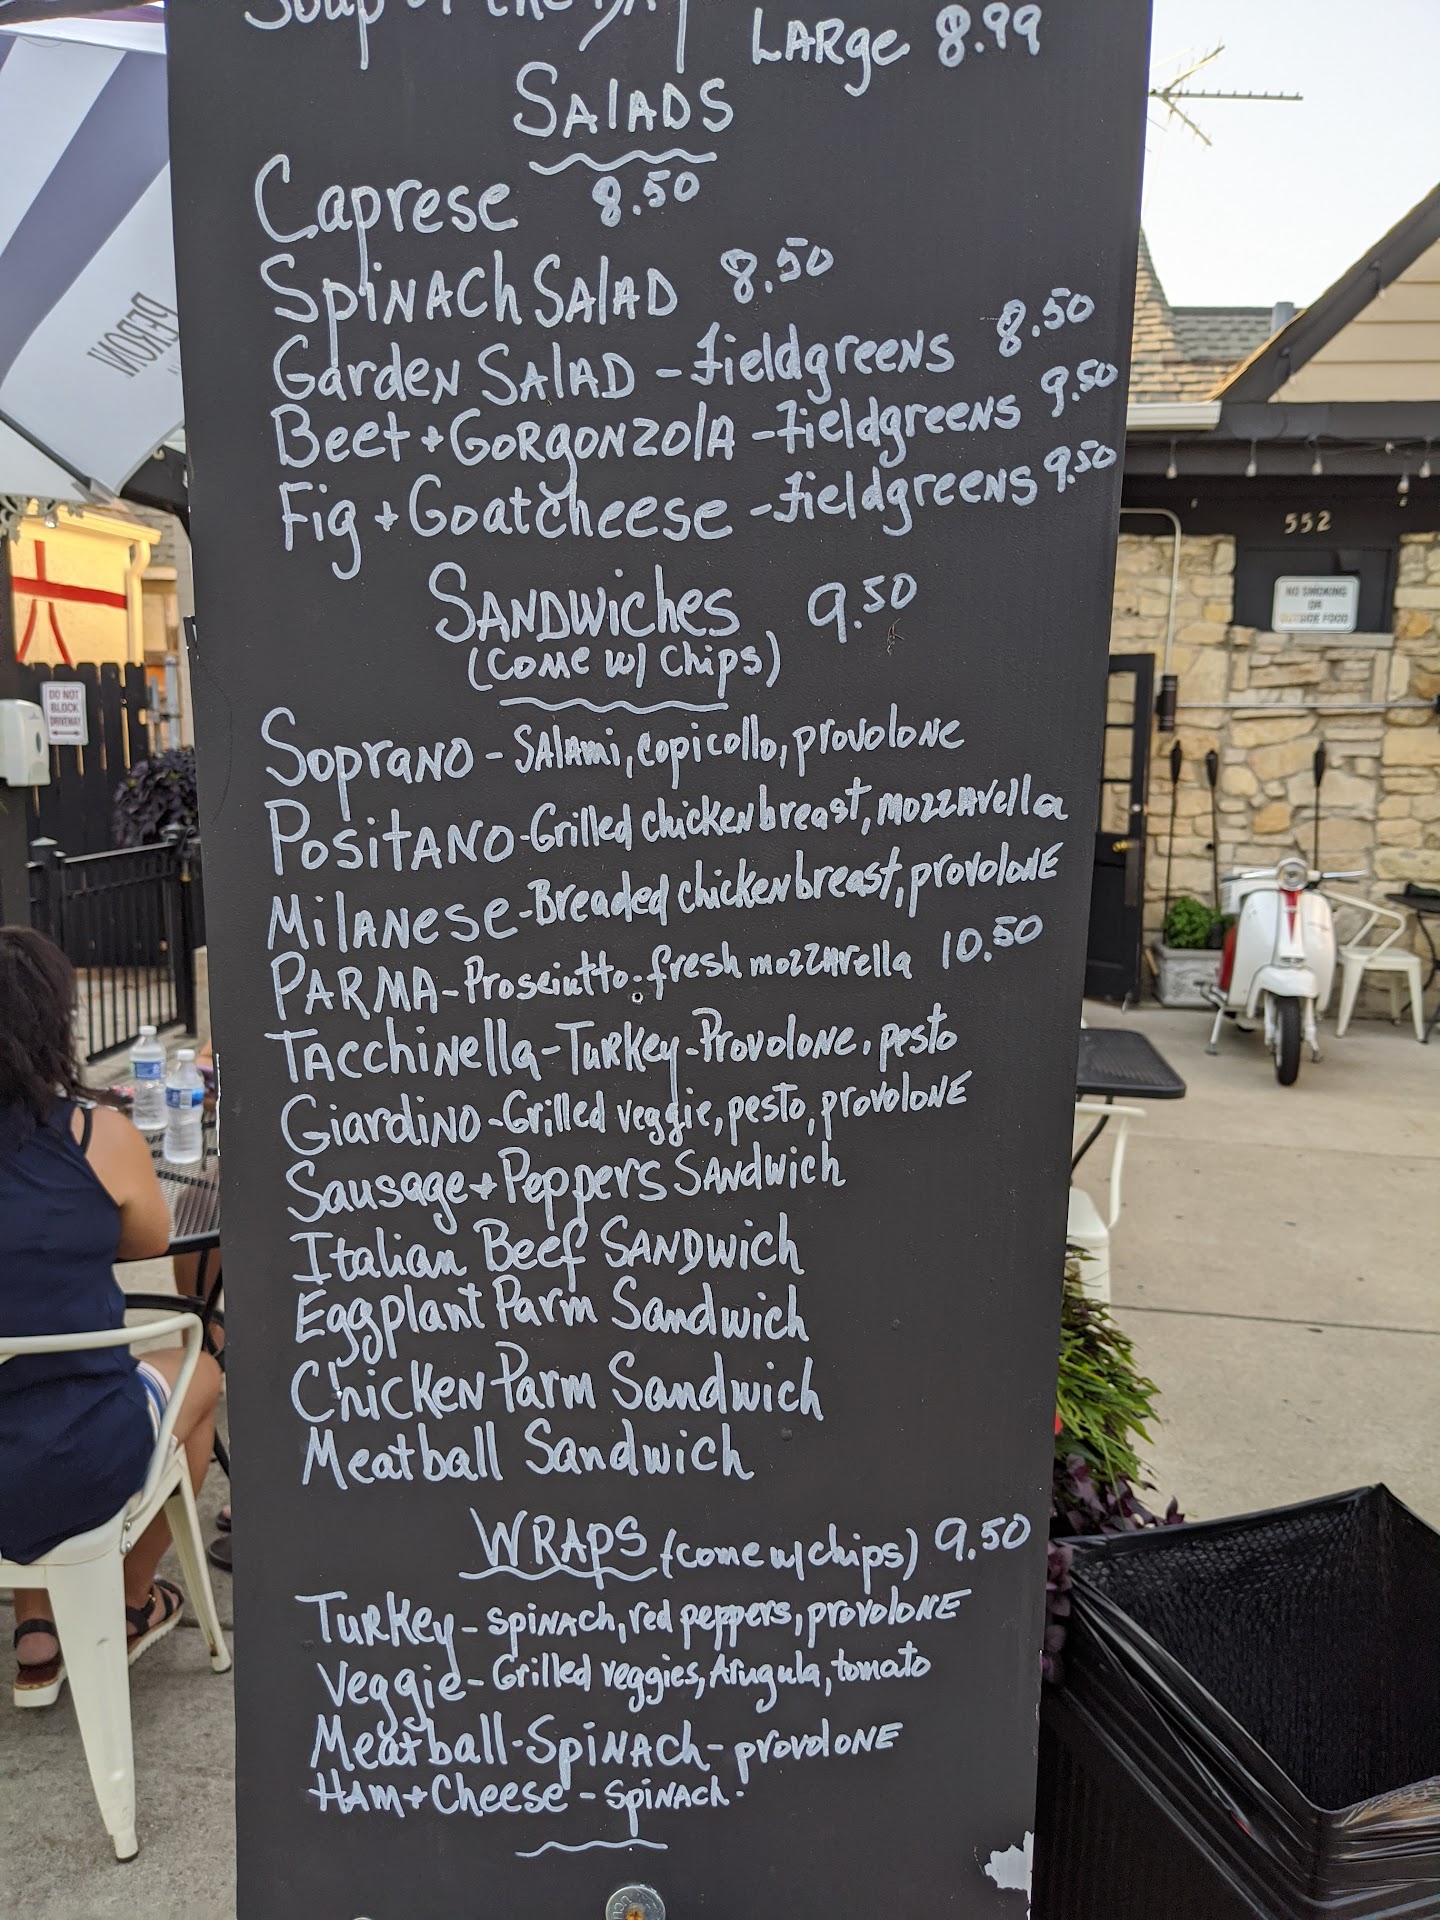 Soup of the DAy
LARge 8.99
SALADS
Caprese 8.50
SpiNACh SALAD 8.50
Garden SALAD - Fieldgreens 8.50
Beet + GORgONZOLA - Fieldgreens 9.50
Fig + Goatcheese - Fieldgreens 9.50
SANDWiches 9.50
(Come w/ Chips)
Soprano - SALAmi, copicollo, provolone
Positano - Grilled chicken breast, mozzarella
Milanese - Breaded chicken breast, provolone
PARMA - Prosciutto - fresh mozzarella 10.50
Tacchinella - Turkey - Provolone, pesto
Giardino - Grilled veggie, pesto, provolone
Sausage + Peppers Sandwich
Italian Beef SANDWich
Eggplant Parm Sandwich
Chicken Parm Sandwich
Meatball Sandwich
WRAPS (come w/ chips) 9.50
Turkey - spinach, red peppers, provolone
Veggie - Grilled veggies, Arugula, tomato
Meatball - Spinach - provolone
HAM + Cheese - spinach.
PERONI
DO NOT
BLOCK
DRIVEWAY
552
NO SMOKING
OR
OUTSIDE FOOD